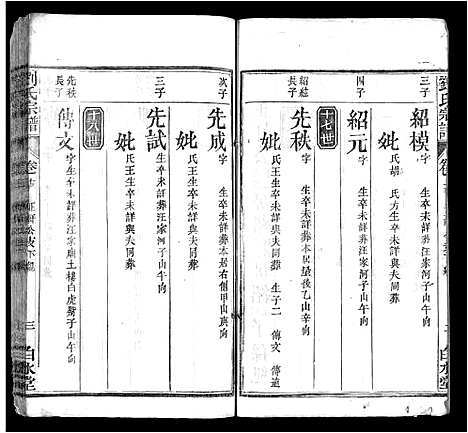 劉氏宗譜
三子
紹模
字 生卒未詳葬汪家河子山午向
妣
氏胡 氏方生卒未詳與夫同葬
四子
紹元
字 生卒未詳葬汪家河子山午向
妣
氏 生卒未詳與夫同葬
十七世
紹
長子
先秩
字 生卒未詳葬本居屋後乙山辛向
妣
氏 生卒未詳與夫同葬 生子二 傳文 傳遠
次子
先成
字 生卒未詳葬本居右側甲山庚向
妣
氏王生卒未詳與夫同葬
三子
先試
字生卒未詳葬汪家河子山午向
妣
氏王生卒未詳與夫同葬
十八世
先秩
長子
傳文
字生卒未詳葬汪家廟土樓白虎
子山午向
劉氏宗譜
卷
三
白水堂